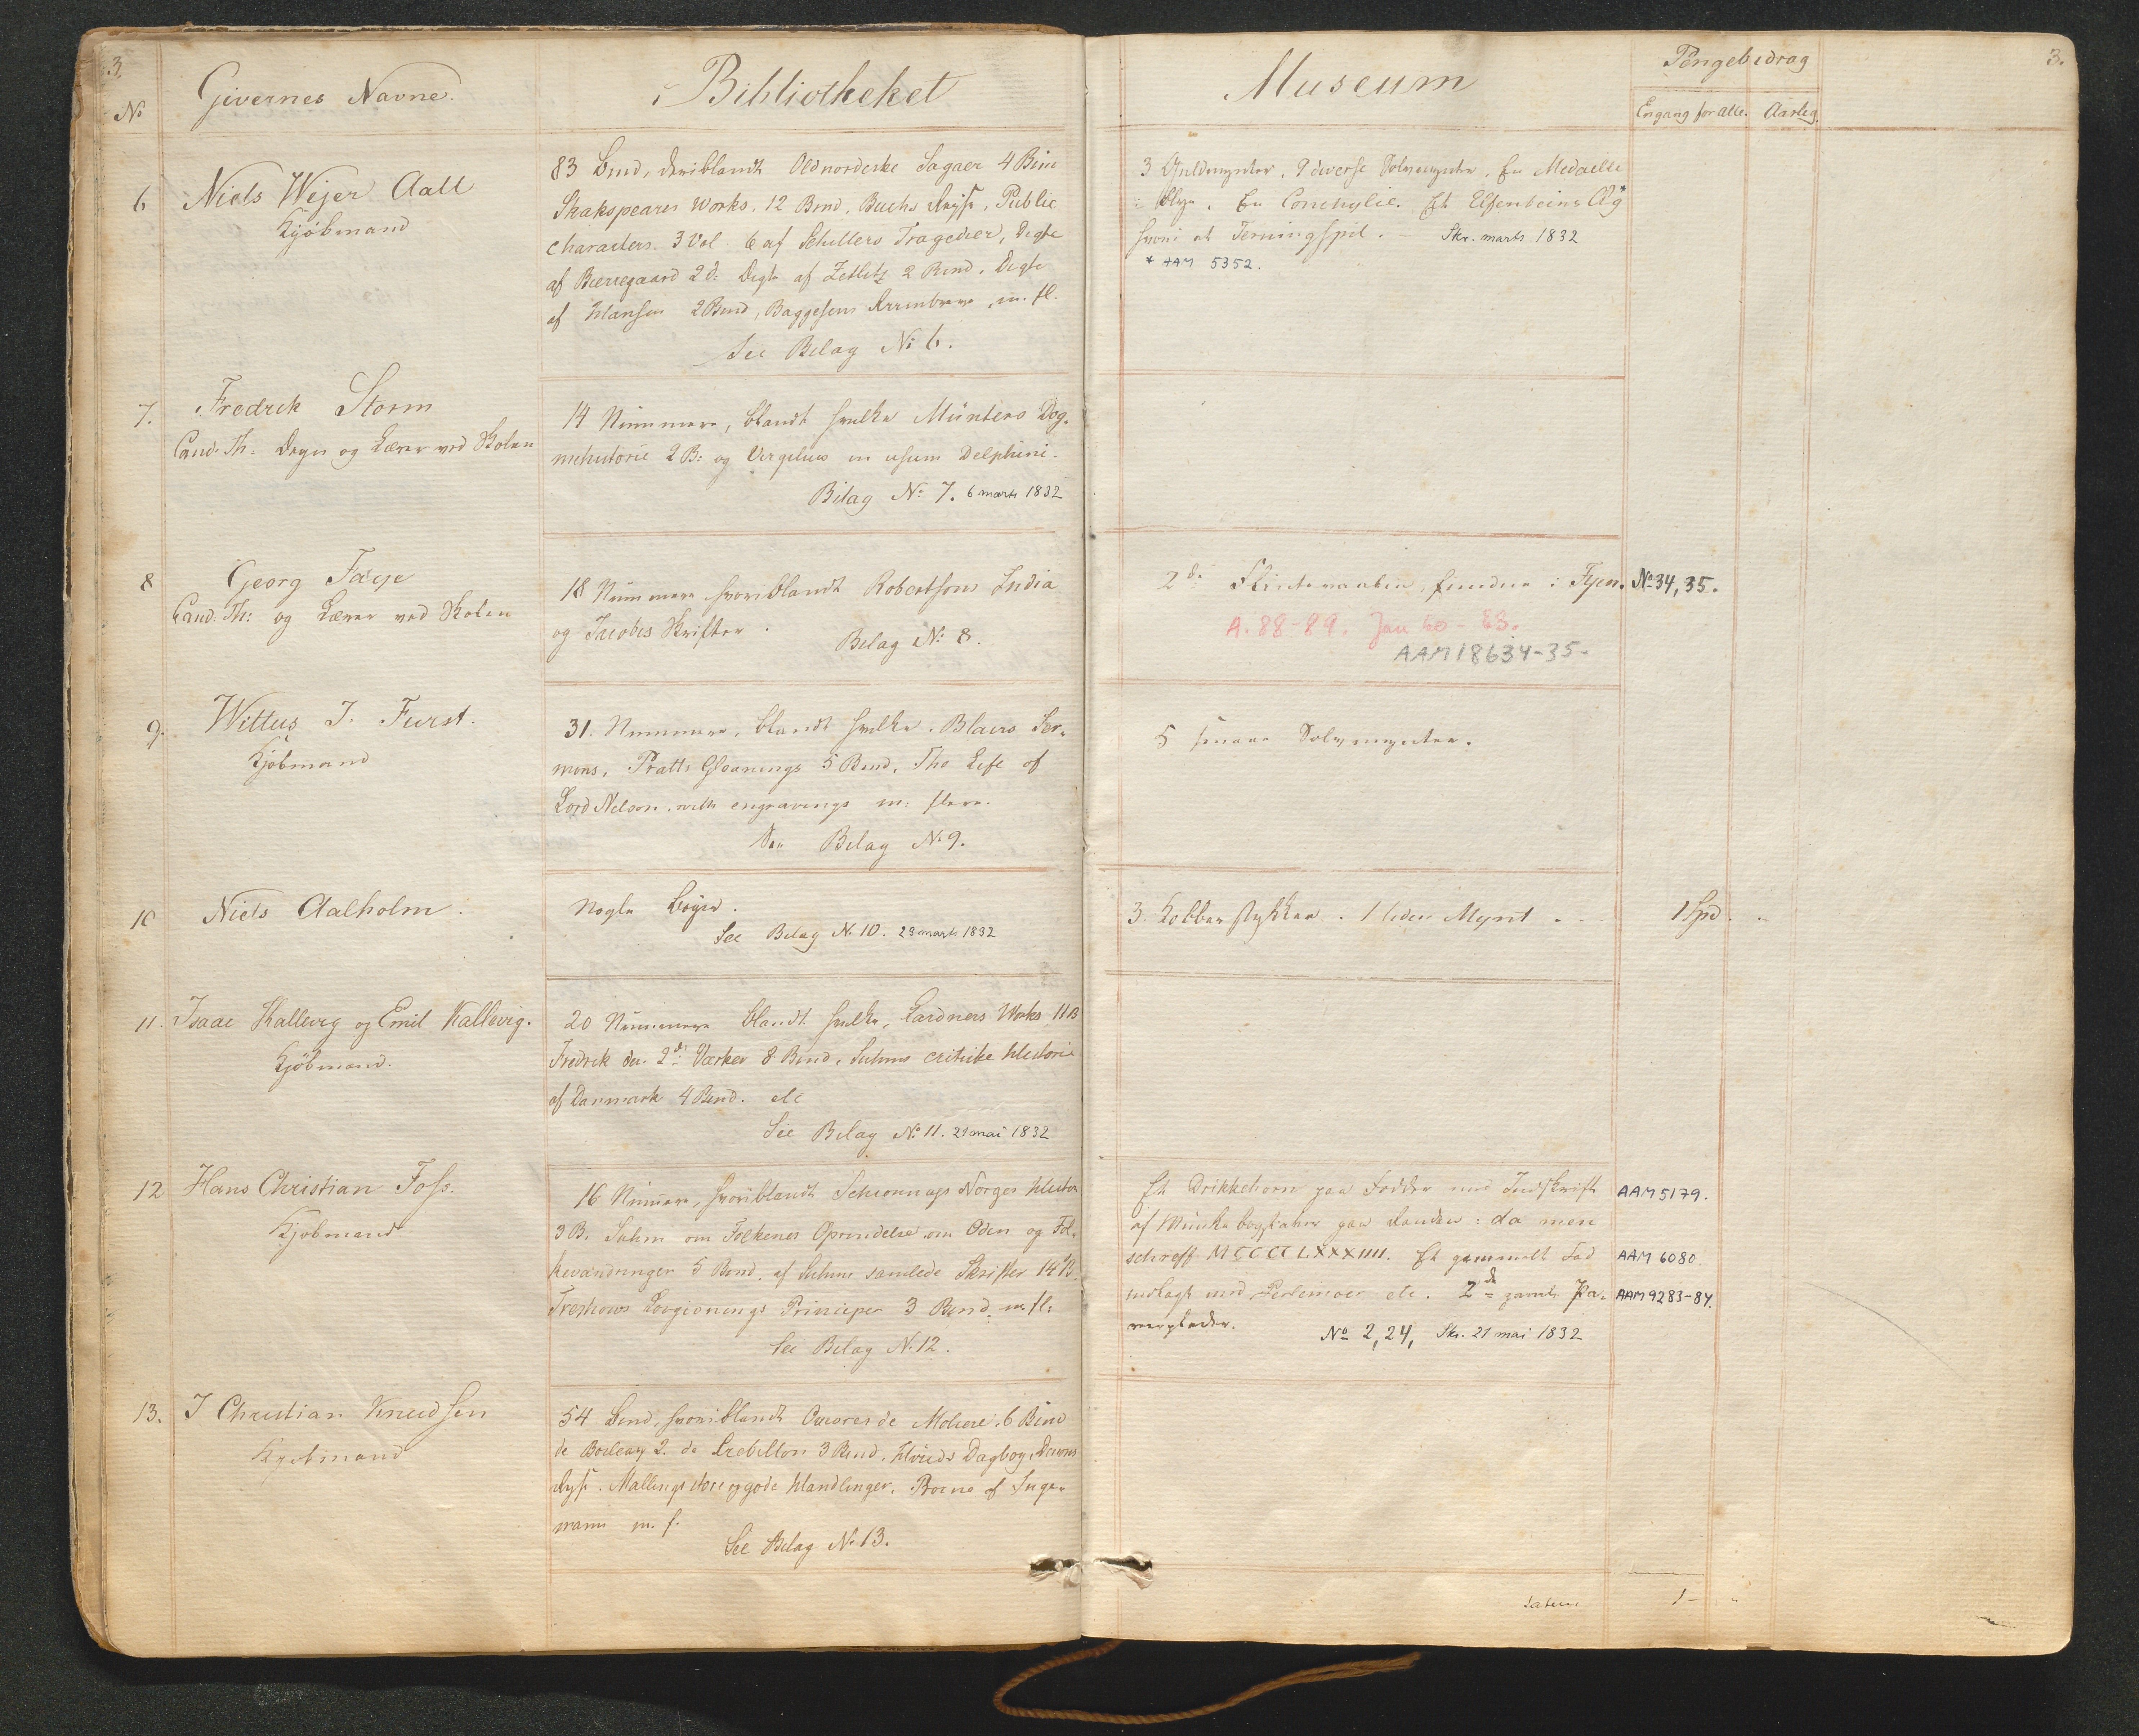 3.
No
Givernes Navne.
Bibliotheket
6
Niels Wejer Aall
Kjøbmand
83 Bind, deriblandt Oldnordiske Sagaer 4 Bind
Shakspeares Works. 12 Bind, Buchs Reise, Public
characters. 3 Vol. 6 af Schillers Tragedier, Digte
af Bierregaard 2 d: Digte af Zetlitz 2 Bind, Digte
af Hansen 2 Bind, Baggesens Riimbreve, m. fl.
See Bilag No 6.
7.
Fredrik Storm
Cand. Th: og Lærer ved Skolen
14 Nummere, blandt hvilke Münters Dog-
mehistorie 2 B: og Virgilius in usum Delphini.
Bilag No 7. 6 marts 1832
8
Georg Faye
Cand: Th: og Lærer ved Skolen
18 Nummere hvoriblandt Robertsons India
og Jacobis Skrifter.
Bilag No 8.
9.
Wittus J. Furst.
Kjøbmand
31. Nummere, blandt hvilke, Blairs Ser-
mons, Pratts Gleanings 5 Bind, The Life of
Lord Nelson, with engravings m: flere.
See Bilag No 9.
10
Niels Aalholm.
Nogle Bøger.
See Bilag No 10. 23 marts 1832
11.
Isaac Kallevig og Emil Kallevig.
Kjøbmænd.
20 Nummere blandt hvilke, Lardners Works 11 B
Fredrik den 2d: Værker 8 Bind, Suhms critiske Historie
af Danmark 4 Bind. etc
See Bilag No 11. 21 mai 1832
12
Hans Christian Foss.
Kjøbmand
16 Numere, hvoriblandt Schiønnings Norges Histor
3 B. Suhm om Folkenes Oprindelse om Oden og Fol-
kevandringer 5 Bind, af Suhms samlede Skrifter 14 B.
Treschows Lovgivnings Principer 3 Bind m fl.
See Bilag No. 12.
13.
J Christian Knudsen
Kjøbmand
54 Bind, hvoriblandt Oeuvres de Moliere, 6 Bind
de Boileau 2. de Crebillon 3 Bind, Hvids Dagbog,
Reise. Mallings store og gode Handlinger, af Inge-
mann m. f.
See Bilag No 13.
Museum
Pengebidrag
3.
Engang for alle. Aarlig.
3 Guldmynter, 9 diverse Sølvmynter, En Medaille
i Blye. En Conchylie. Et Elfenbeins Æg*
hvori et Terningspil. – Skr. marts 1832
* AAM 5352.
2de Flintevaaben, fundne i Fyen. No 34, 35.
A. 88-89. Jan 60-63.
AAM 18634-35.
5 Sølvmynter.
3. Kobberstykker. 1 liden Mynt. 1 Spd.
Et Drikkehorn paa Fødder med Indskrift AAM 5179.
af Munkebogstaver paa Randen: da men
schreff MCCCCLXXXIIII. Et gammelt Fad AAM 6080
indlagt med Perlemoer etc. 2de gamle Pa- AAM 9283-84.
neerplader.
No 2, 24, Skr. 21 mai 1832
Latus
1 –